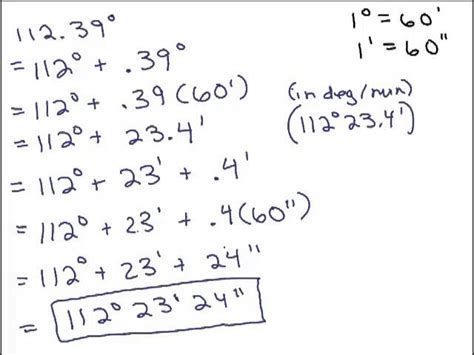 112.39°
= 112° + .39°
= 112° + .39(60')
= 112° + 23.4'
= 112° + 23' + .4'
= 112° + 23' + .4(60")
= 112° + 23' + 24"
= 112° 23' 24"
1° = 60'
1' = 60"
(in deg/min)
(112° 23.4')